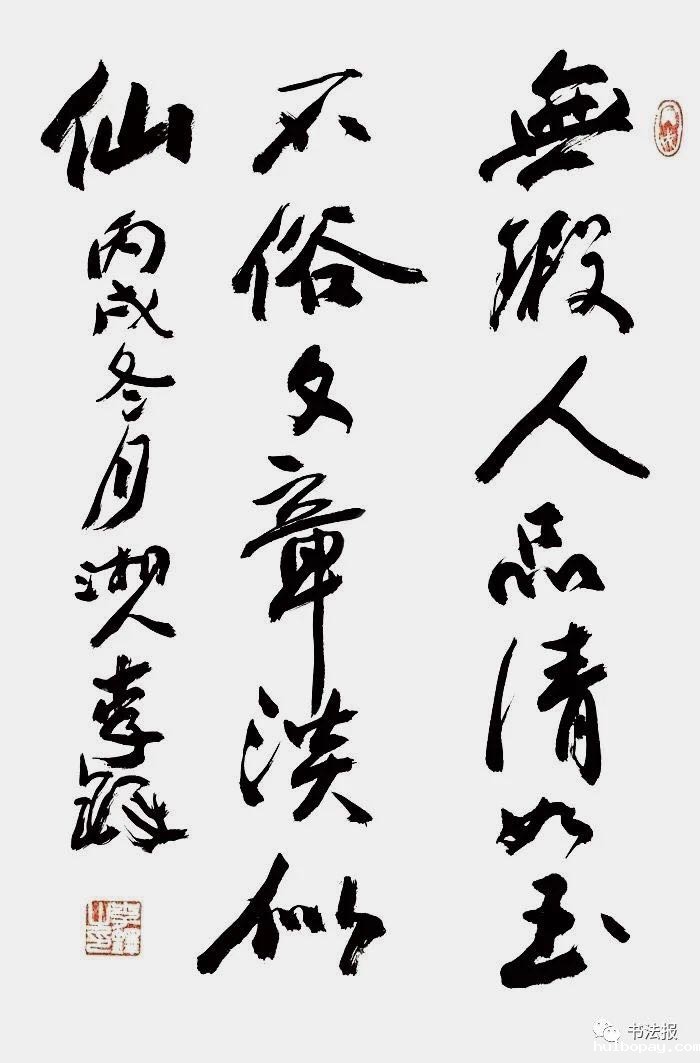 無瑕人品清如玉
不俗文章淡似
仙
丙戌冬月湘人李鐸
书法报
huibopay.com